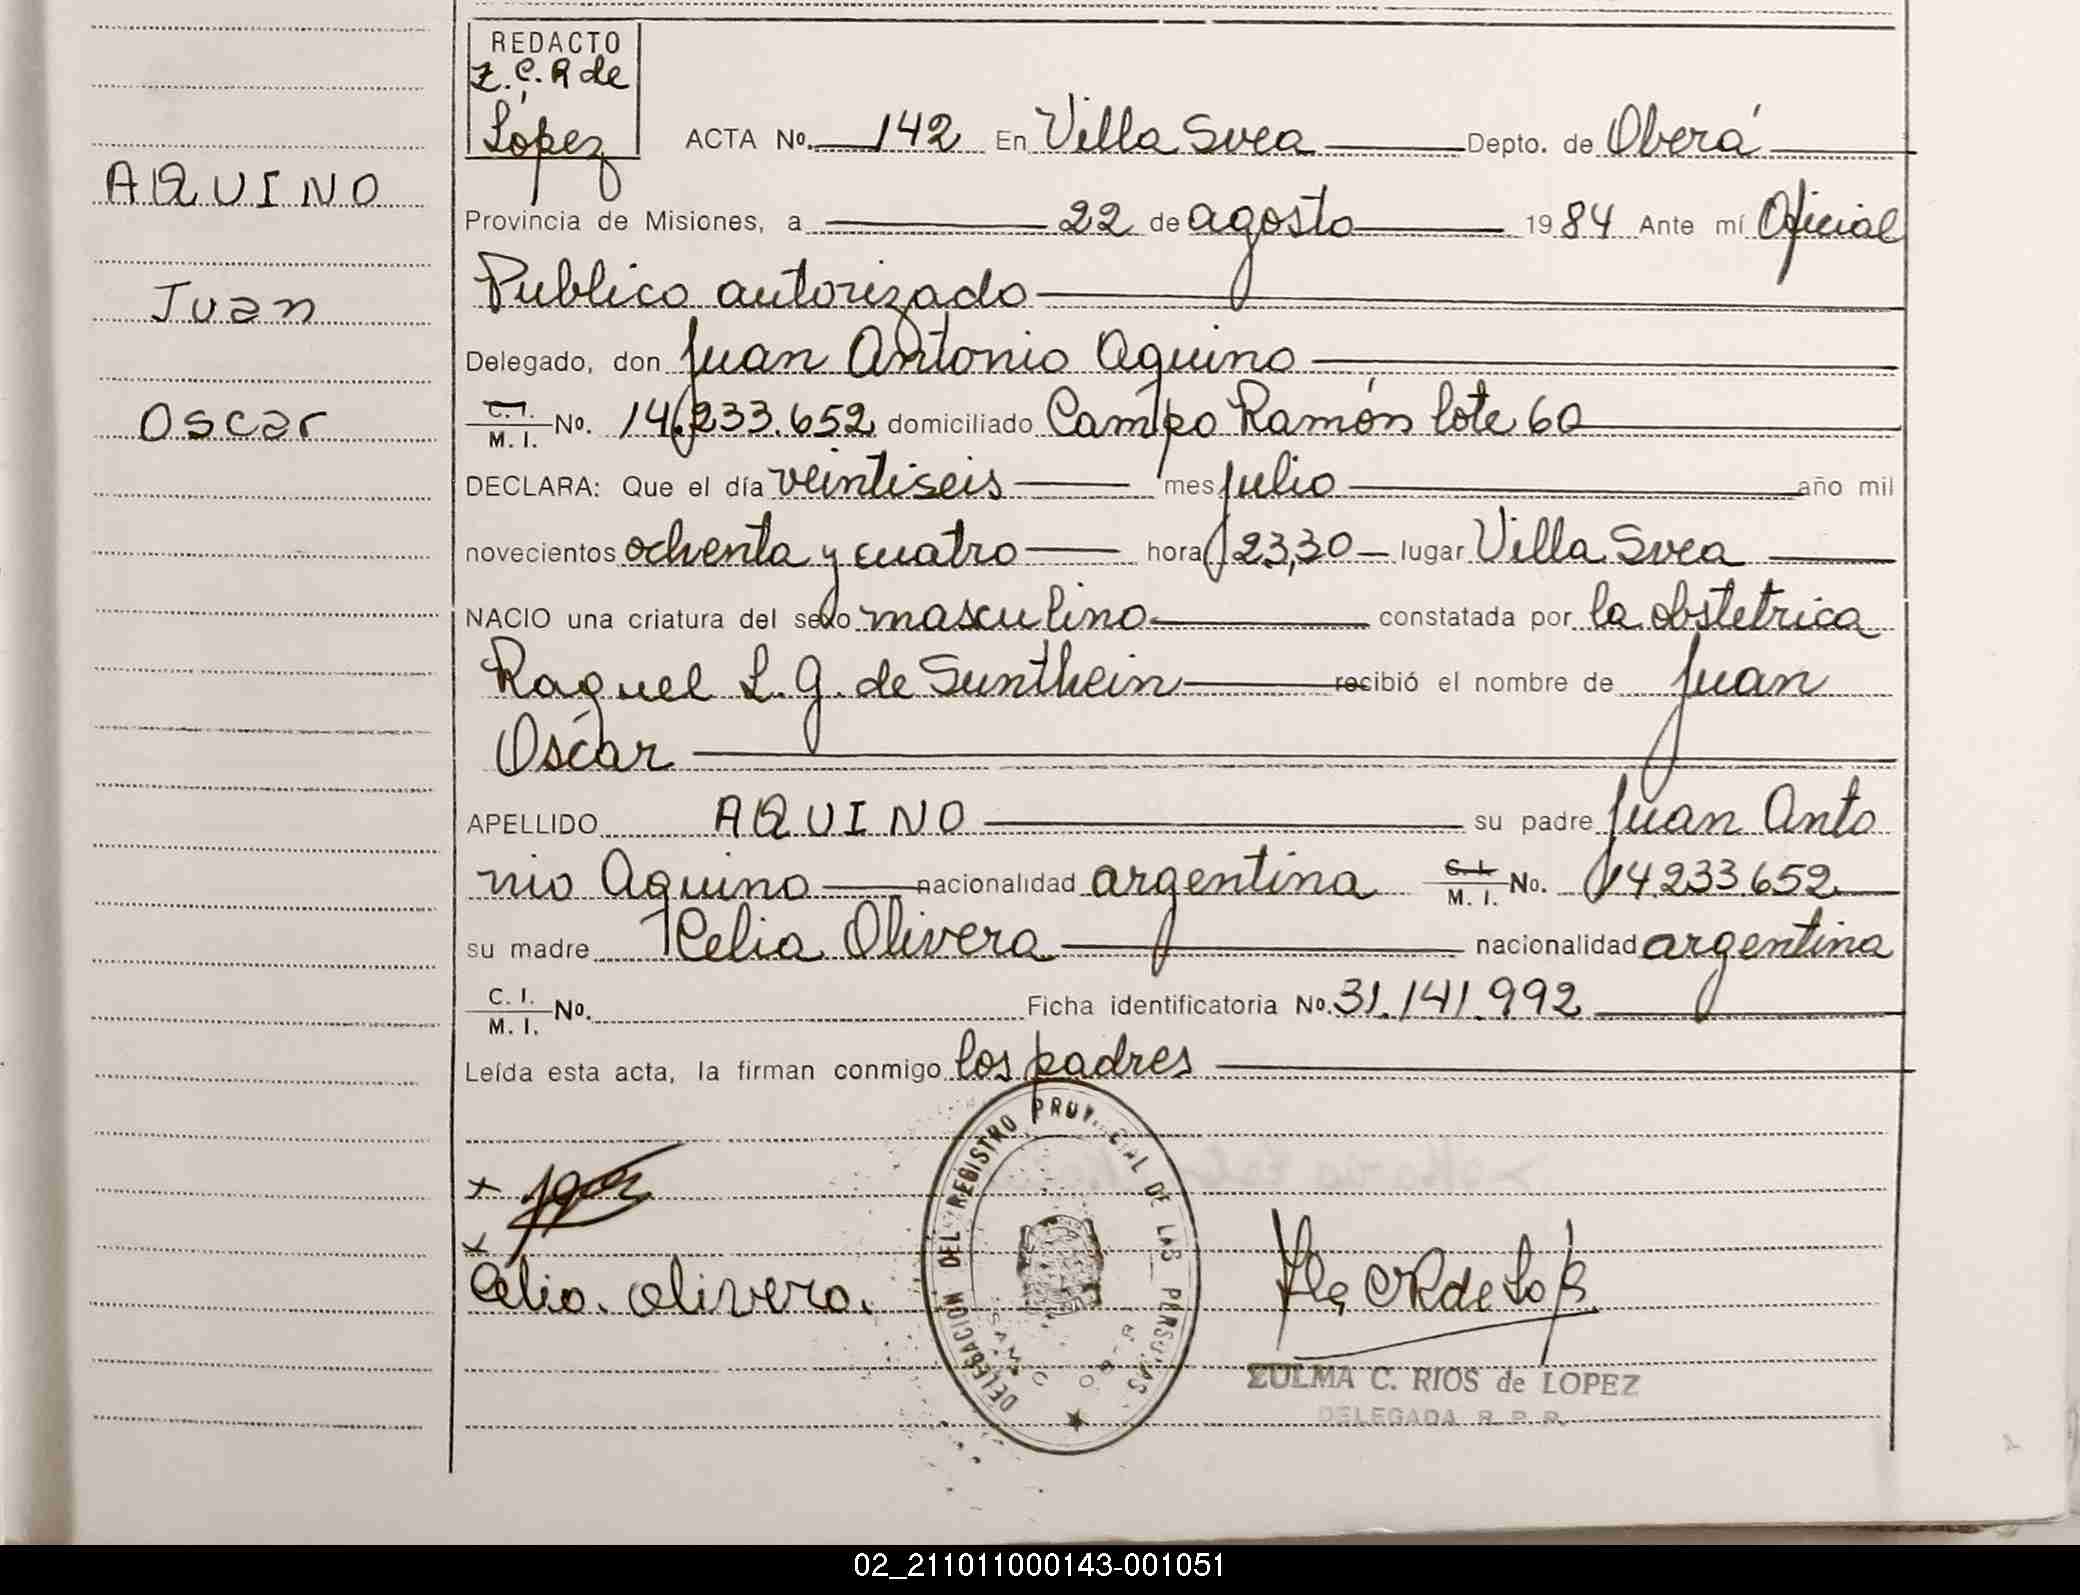 REDACTO
Z. C. R de
López
ACTA No. 142 En Villa Svea Depto. de Oberá
AQUINO
Provincia de Misiones, a 22 de agosto 1984 Ante mí Oficial
Publico autorizado
Juan
Delegado, don Juan Antonio Aquino
Oscar
C. I. / M. I. No. 14.233.652 domiciliado Campo Ramón lote 60
DECLARA: Que el día veintiseis mes julio año mil
novecientos ochenta y cuatro hora 23,30 lugar Villa Svea
NACIO una criatura del sexo masculino constatada por la obstetrica
Raquel L. G. de Sunthein recibió el nombre de Juan
Oscar
APELLIDO AQUINO su padre Juan Anto
nio Aquino nacionalidad argentina C. I. / M. I. No. 14.233.652
su madre Celia Olivera nacionalidad argentina
C. I. / M. I. No. Ficha identificatoria No. 31.141.992
Leída esta acta, la firman conmigo los padres
DELEGACION DEL REGISTRO PROVINCIAL DE LAS PERSONAS
x
x
Celia. olivera.
ZULMA C. RIOS de LOPEZ
DELEGADA R. P. P.
02_211011000143-001051